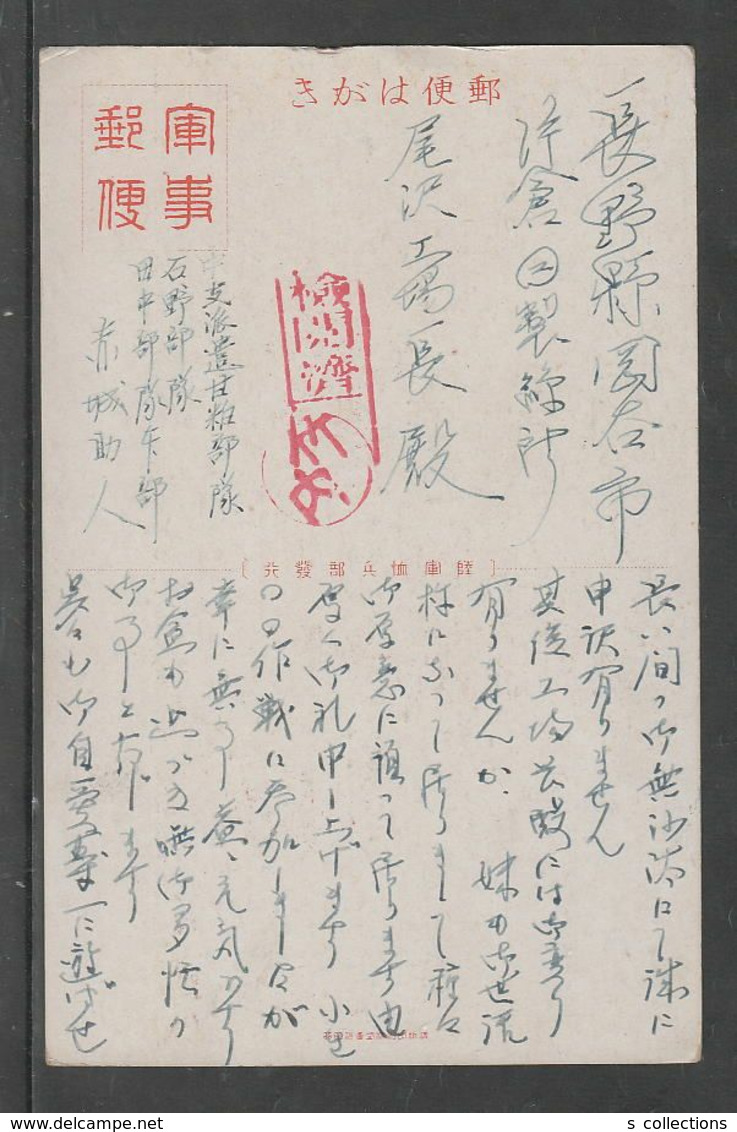 郵便はがき
軍事
郵便
長野縣岡谷市
片倉製絲所
尾沢工場長殿
検閲濟
中支派遣甘粕部隊
石野部隊
田中部隊
赤城助人
陸軍恤兵部發行
長い間御無沙汰にて誠に
申訳有りません
其後工場長殿には御変り
有りませんか、妹も御世話
様になって居りまして種々
御厚意に預って居ります由
厚く御礼申し上げます 小生
の作戦に参加しましたが
幸に無事益々元気です
お盆も近づき御多忙の
御事と存じます
呉々も御自愛
s collections